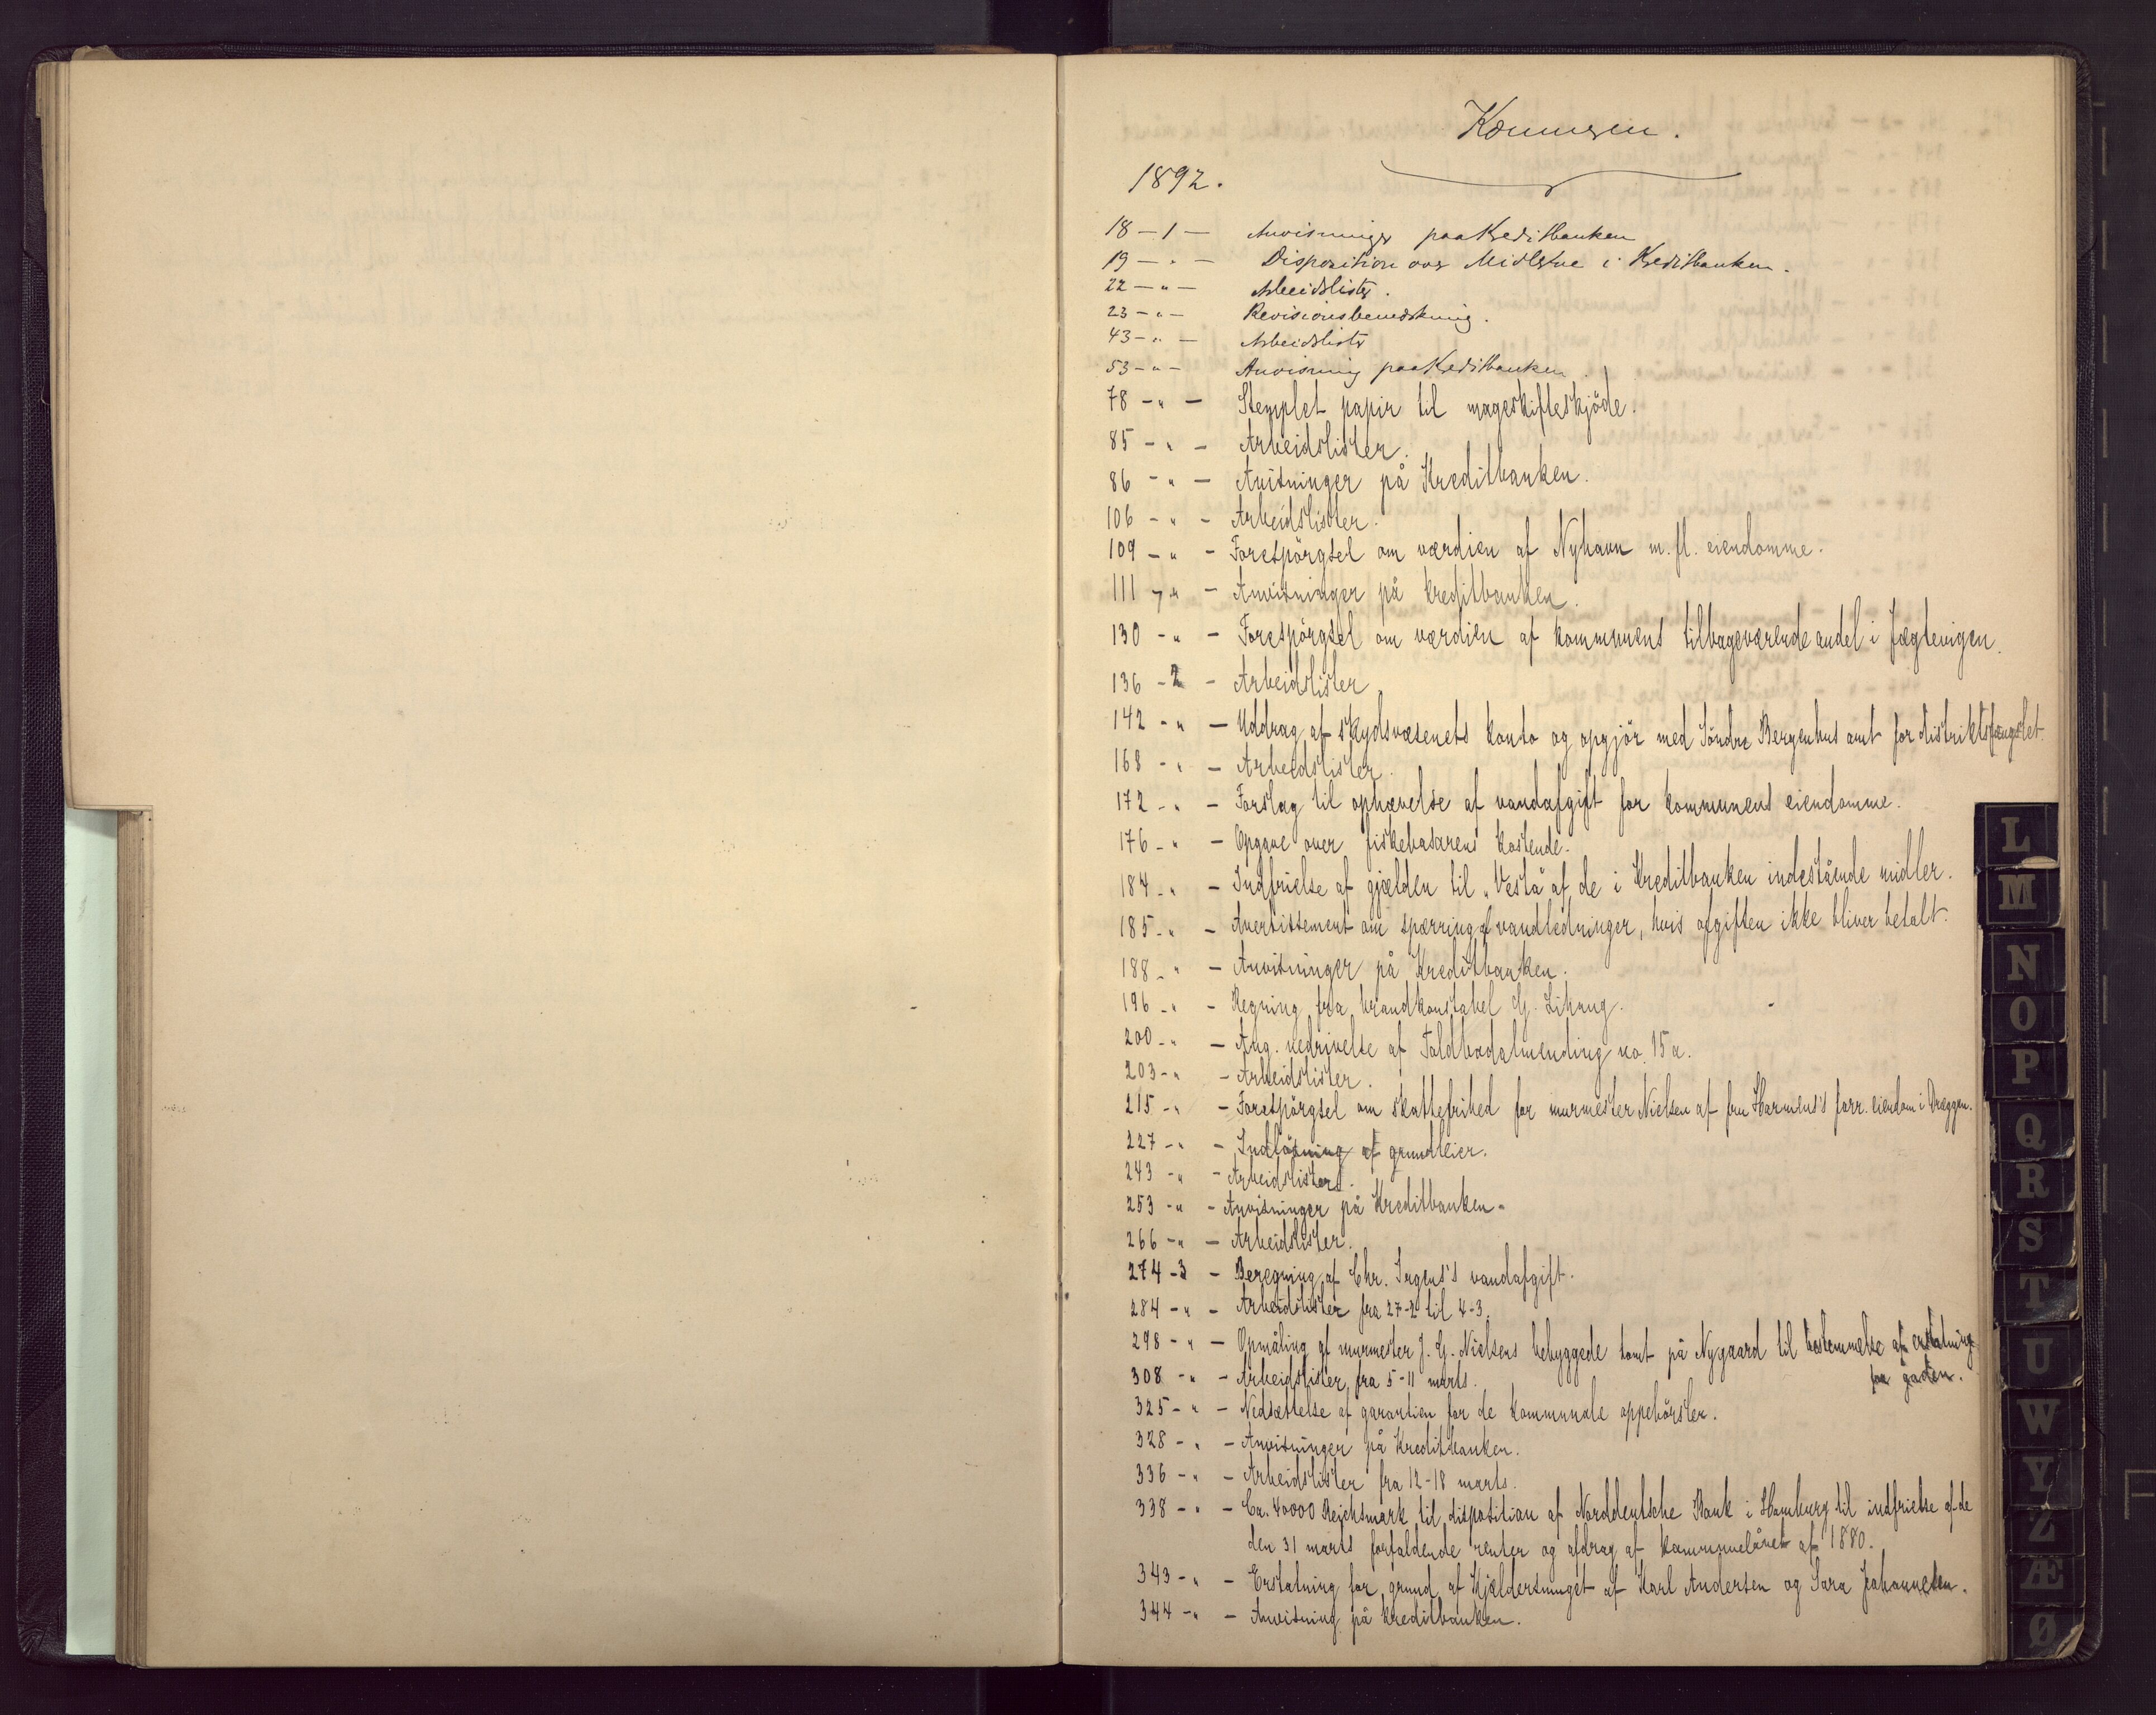 Kommunen.
1892.
18 - 1 - Anvisninger paa Kreditbanken
19 - " - Disposition over Midlerne i Kreditbanken.
22 - " - Arbeidslister.
23 - " - Revisionsbemærkning.
43 - " - Arbeidslister
53 - " - Anvisning paa Kreditbanken.
78 - " - Stemplet papir til mageskifteskjöde.
85 - " - Arbeidslister.
86 - " - Anvisninger på Kreditbanken.
106 - " - Arbeidslister.
109 - " - Forespörgsel om værdien af Nyhavn m. fl. eiendomme.
111 - " - Anvisninger på kreditbanken.
130 - " - Forespörgsel om værdien af kommunens tilbageværende andel i Jægtevigen.
136 - 2 - Arbeidslister
142 - " - Uddrag af skydsvæsenets konto og opgjör med Söndre Bergenhus amt for distriktsfængslet.
168 - " - Arbeidslister.
172 - " - Forslag til ophævelse af vandafgift for kommunens eiendomme.
176 - " - Opgave over fiskebasarens kostende.
184 - " - Indfrielse af gjælden til "Vesta" af de i Kreditbanken indestående midler.
185 - " - Avertissement om spærring af vandledninger, hvis afgiften ikke bliver betalt.
188 - " - Anvisninger på Kreditbanken.
196 - " - Regning fra brandkonstabel G. Lihaug.
200 - " - Ang. nedrivelse af Toldbodalmending no. 15a.
203 - " - Arbeidslister.
215 - " - Forespörgsel om skattefrihed for murmester Nielsen af fru Harmens's forr. eiendom i Dræggen.
227 - " - Indlösning af grundleier.
243 - " - Arbeidslister.
253 - " - Anvisninger på Kreditbanken.
266 - " - Arbeidslister.
274 - 3 - Beregning af Chr. Irgens's vandafgift.
284 - " - Arbeidslister fra 27-2 til 4-3.
298 - " - Opmåling af murmester J. G. Nielsens bebyggede tomt på Nygaard til bestemmelse af erstatning
for gaden.
308 - " - Arbeidslister fra 5-11 marts.
325 - " - Nedsættelse af garantien for de kommunale oppebörsler.
328 - " - Anvisninger på Kreditbanken.
336 - " - Arbeidslister fra 12-18 marts.
338 - " - Ca. 40000 Reichsmark til disposition af Norddeutsche Bank i Hamburg til indfrielse af de
den 31 marts forfaldende renter og afdrag af kommunelånet af 1880.
343 - " - Erstatning for grund af Kjældersmuget af Karl Andersen og Sara Johannesen.
344 - " - Anvisning på kreditbanken.
L
M
N
O
P
Q
R
S
T
U
W
Y
Z
Æ
Ø